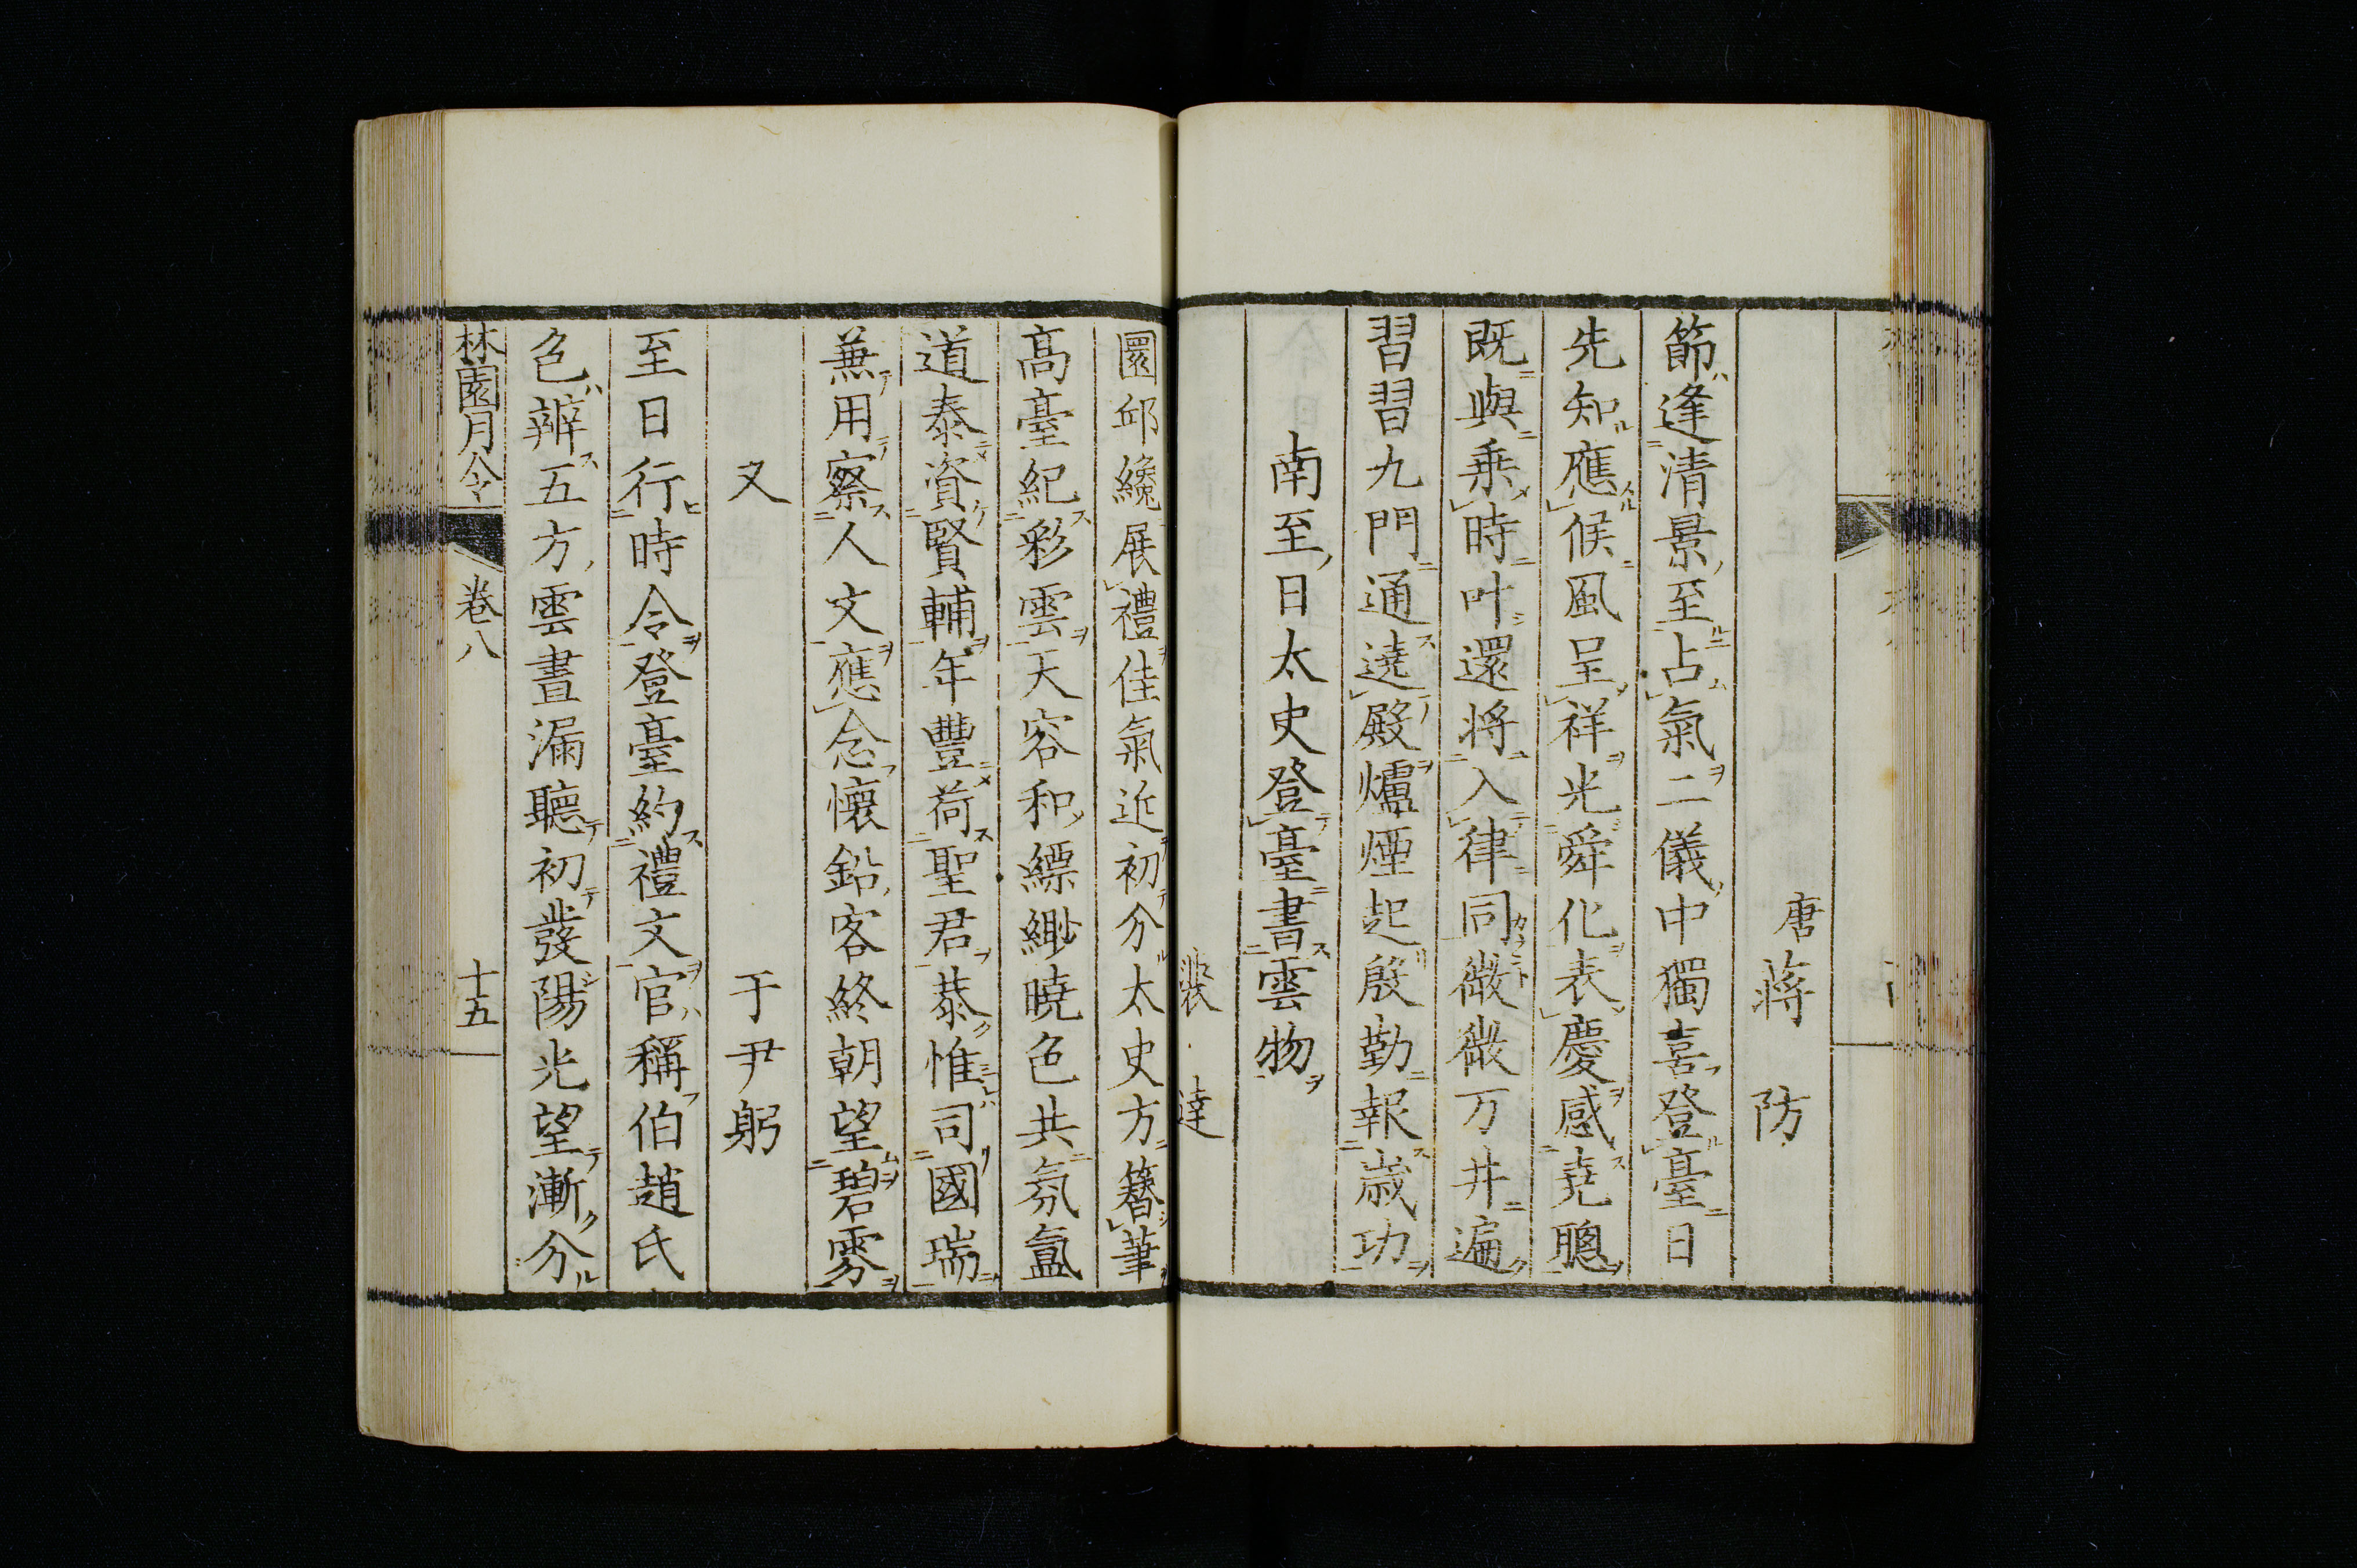 唐 蔣 防
節逢清景至占氣二儀中獨喜登臺日
先知應候風呈祥光舜化表慶感堯聰
既與乗時叶還将入律同微微万井遍
習習九門通遶殿爐煙起殷勤報歳功
南至日太史登臺書雲物
裴 達
圜邱纔展禮佳氣近初分太史方簪筆
高臺紀彩雲天容和縹緲曉色共氛氳
道泰資賢輔年豐荷聖君恭惟司國瑞
兼用察人文應念懐鉛客終朝望碧雰
又 于尹躬
至日行時令登臺約禮文官稱伯趙氏
色辨五方雲晝漏聽初發陽光望漸分
林園月令 卷八 十五